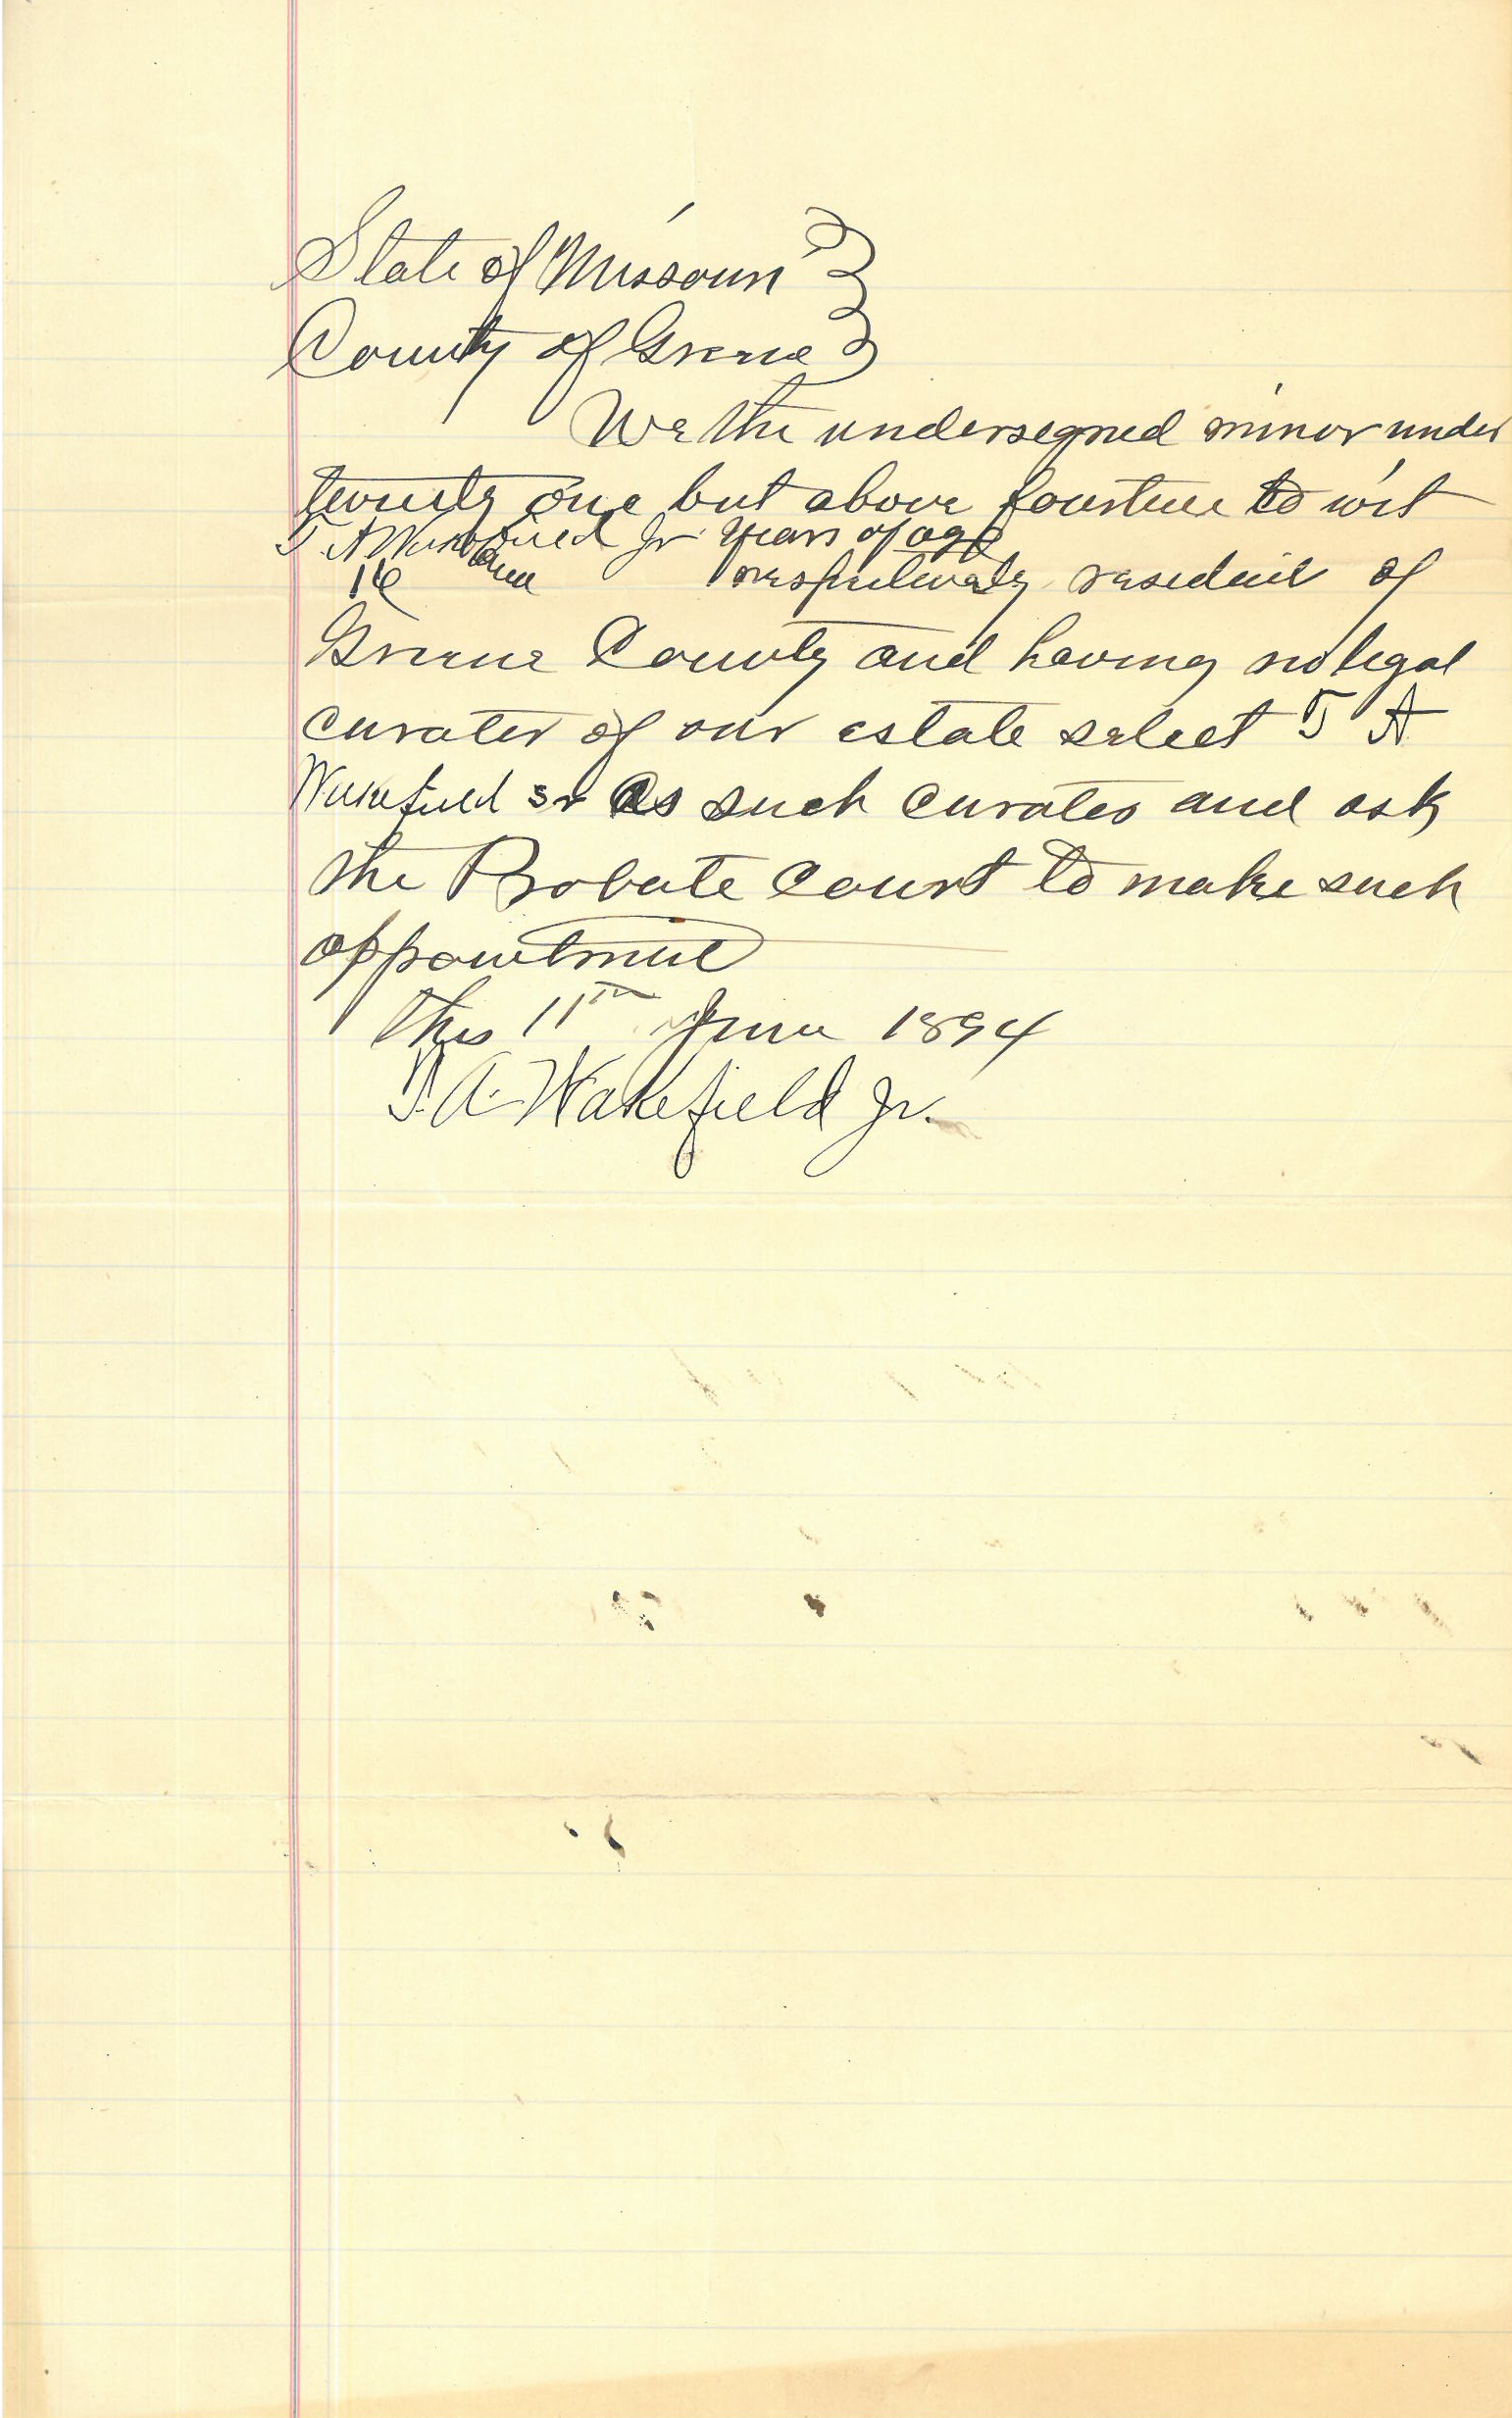 State of Missouri
County of Greene
We the undersigned minor under
twenty one but above fourteen to wit
T A Wakefield Jr years of age
16 and respectively resident of
Greene County and having no legal
curator of our estate select T A
Wakefield Sr as such curator and ask
the Probate Court to make such
appointment
This 11th June 1894
T. A. Wakefield Jr.